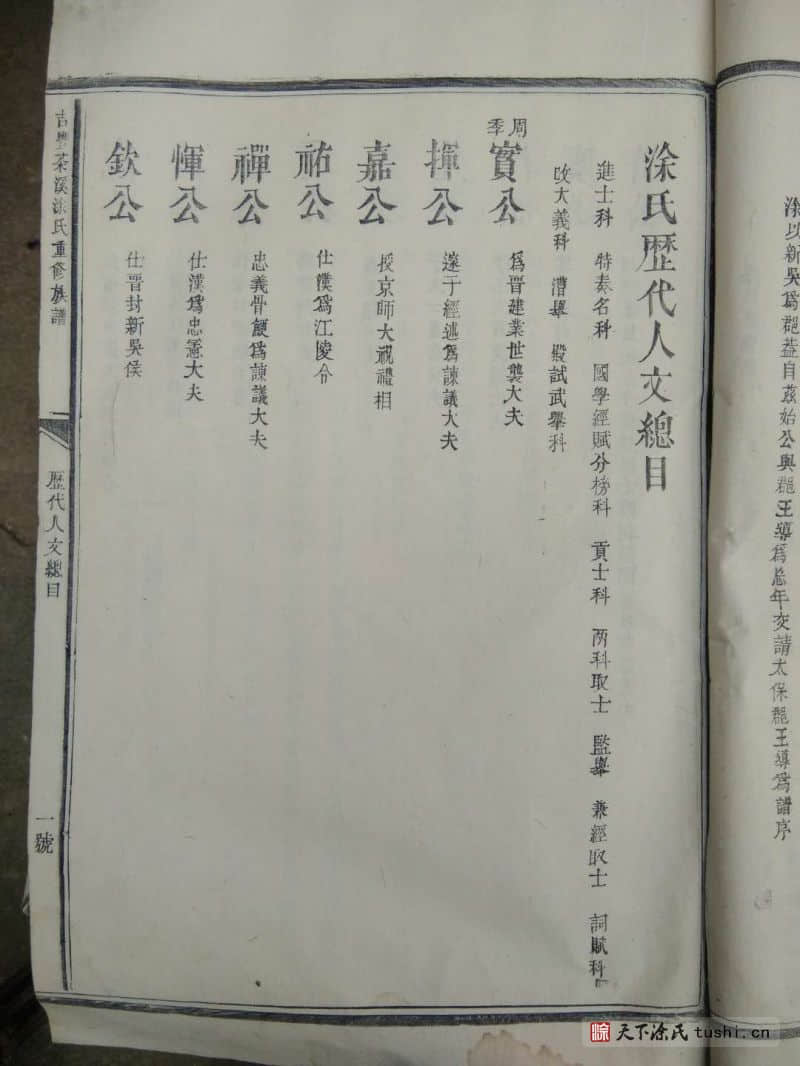 涂以新吳爲郡蓋自茲始公與郡王導爲忘年交請太保郡王導爲譜序
涂氏歷代人文總目
進士科 特奏名科 國學經賦分榜科 貢士科 两科取士 監舉 兼經取士 詞賦科
改大義科 漕舉 殿試武舉科
周季
賓公 爲晋建業世襲大夫
揮公 邃于經述爲諫議大夫
嘉公 授京師大祝禮相
祐公 仕漢爲江陵令
禪公 忠義骨鯁爲諫議大夫
惲公 仕漢爲忠憲大夫
欽公 仕晋封新吳侯
吉豐茶溪涂氏重修族譜
歷代人文總目
一號
涂 天下涂氏 tushi.cn